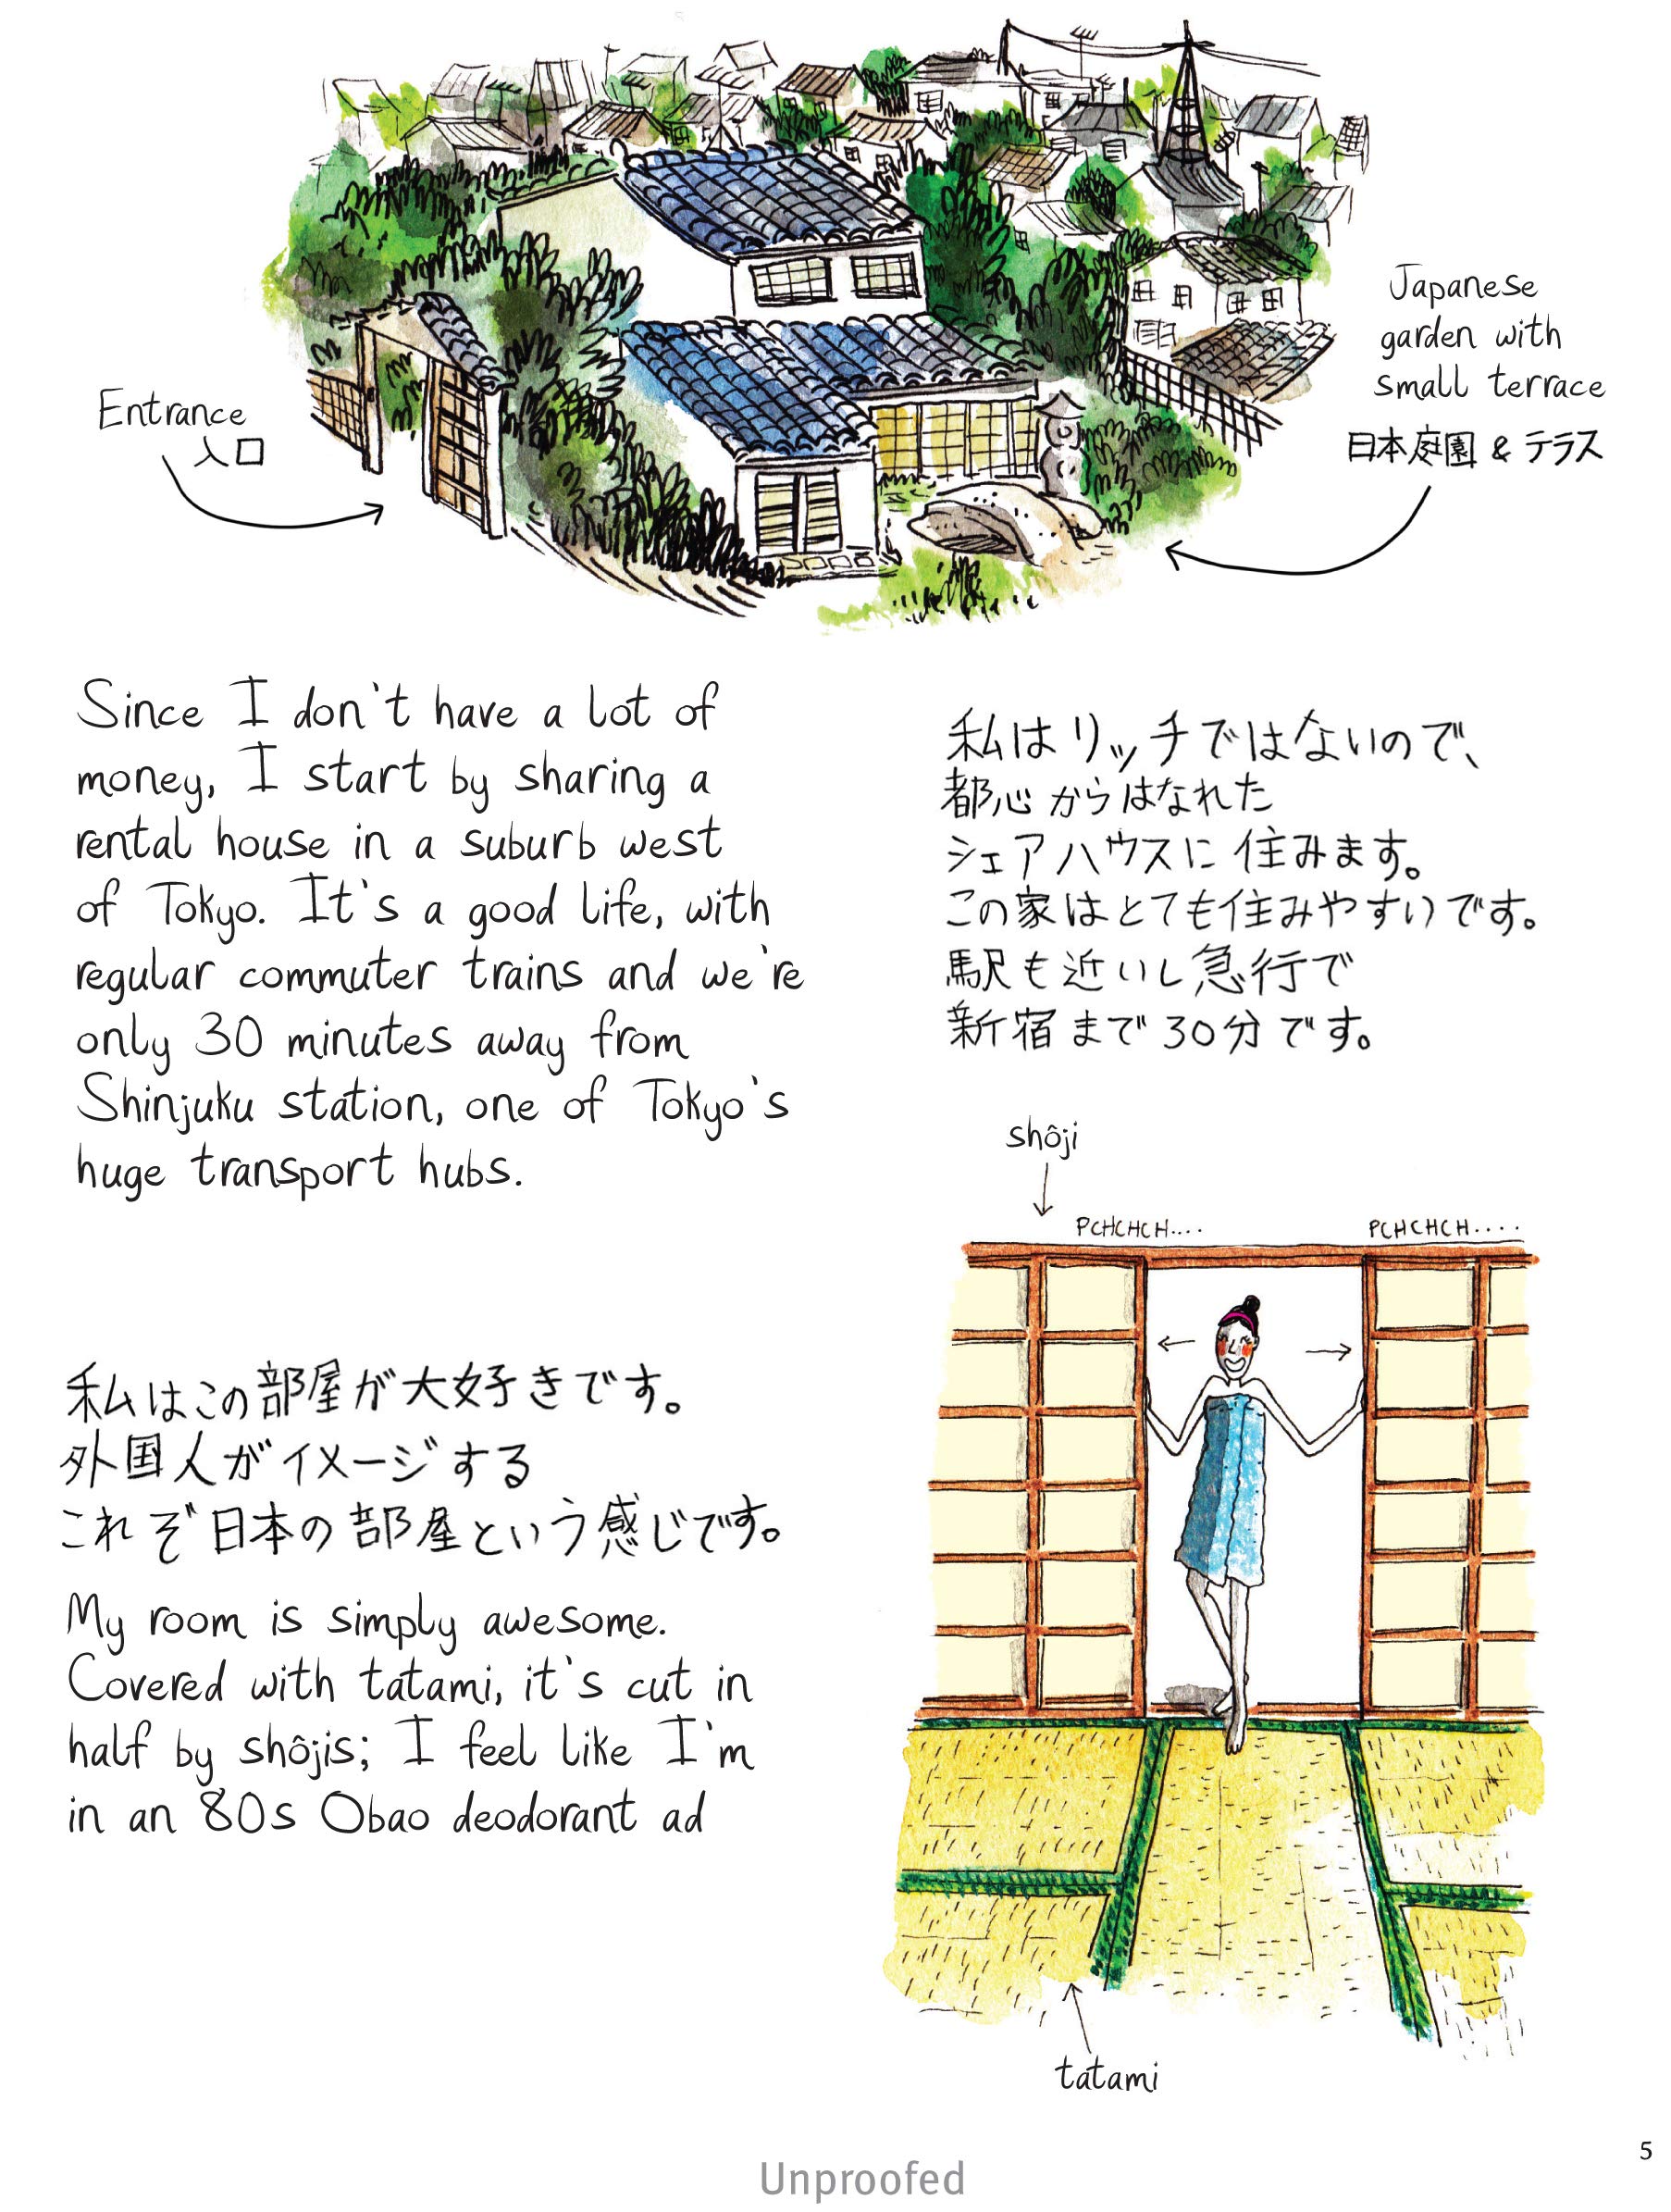 Entrance
入口
Japanese
garden with
small terrace
日本庭園 & テラス
Since I don't have a lot of
money, I start by sharing a
rental house in a suburb west
of Tokyo. It's a good life, with
regular commuter trains and we're
only 30 minutes away from
Shinjuku station, one of Tokyo's
huge transport hubs.
私はリッチではないので、
都心からはなれた
シェアハウスに住みます。
この家はとても住みやすいです。
駅も近いし急行で
新宿まで30分です。
shôji
PCHCHCH....
PCHCHCH....
私はこの部屋が大好きです。
外国人がイメージする
これぞ日本の部屋という感じです。
My room is simply awesome.
Covered with tatami, it's cut in
half by shôjis; I feel like I'm
in an 80s Obao deodorant ad
tatami
5
Unproofed